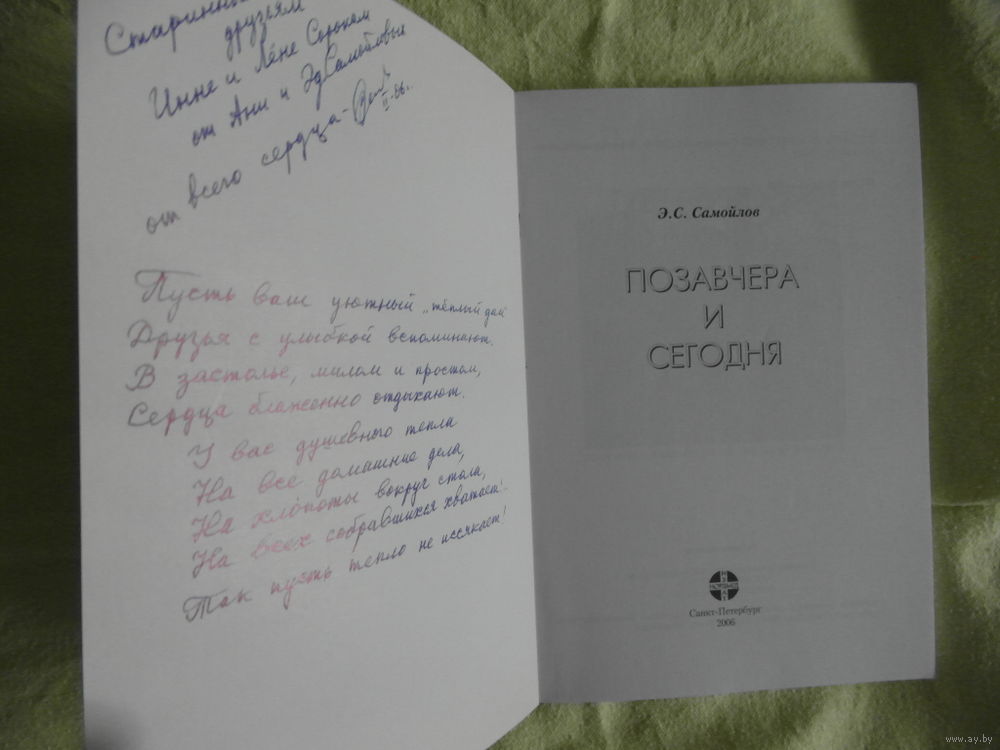 Старинны
друзьям
Инне и Лёне Сороком
от Ани и Эд Самойловых
от всего сердца -
II.06г.
Пусть ваш уютный „тёплый дом"
Друзья с улыбкой вспоминают.
В застолье, милом и простом,
Сердца блаженно отдыхают.
У вас душевного тепла
На все домашние дела,
На хлопоты вокруг стола,
На всех собравшихся хватает!
Так пусть тепло не иссякает!
Э.С. Самойлов
ПОЗАВЧЕРА
И
СЕГОДНЯ
Санкт-Петербург
2006
www.ay.by